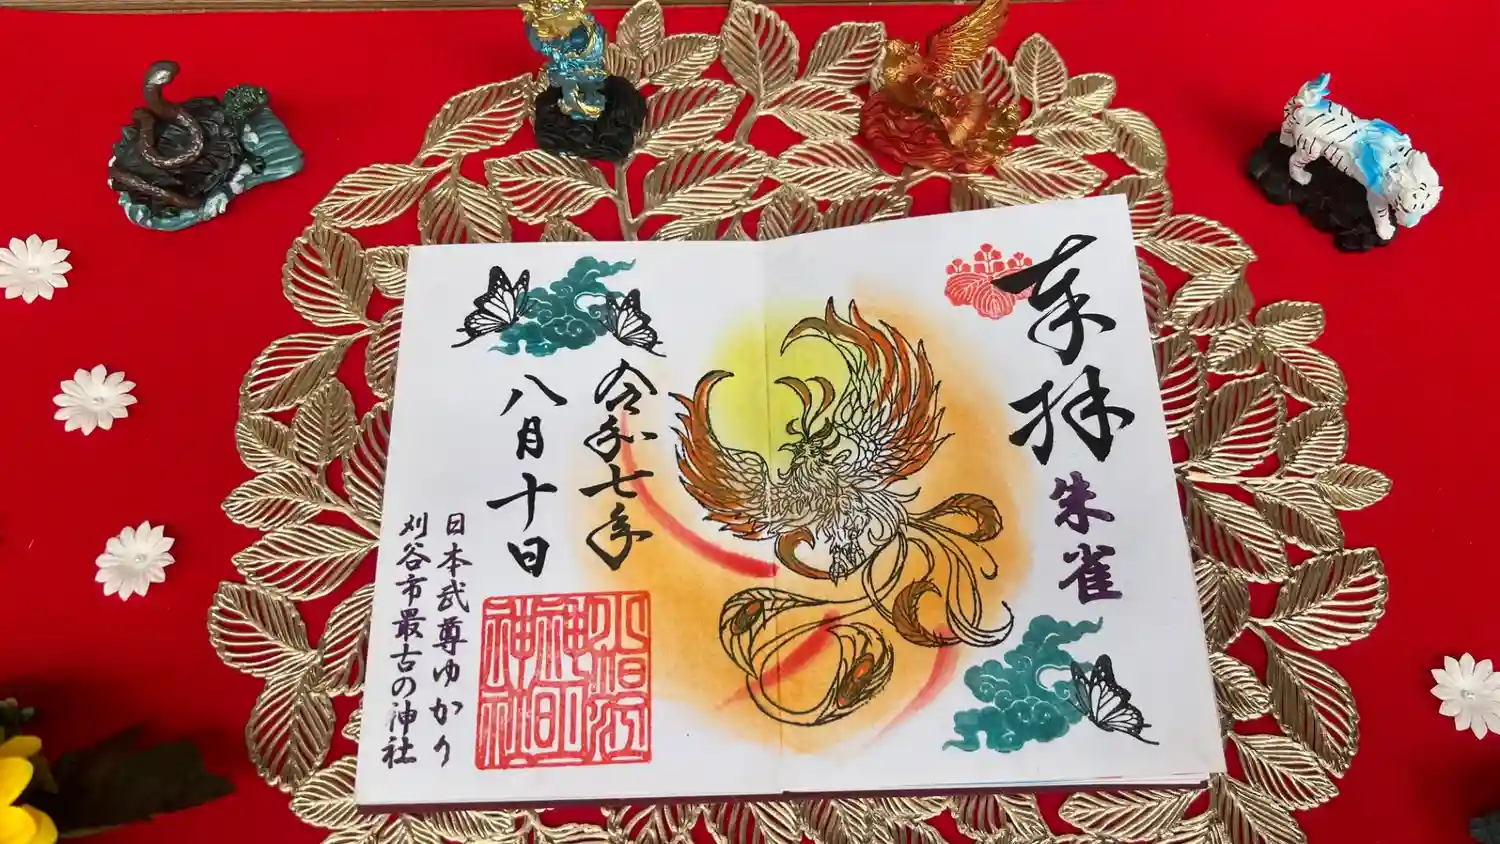 奉拝
朱雀
令和七年
八月十日
日本武尊ゆかり
刈谷市最古の神社